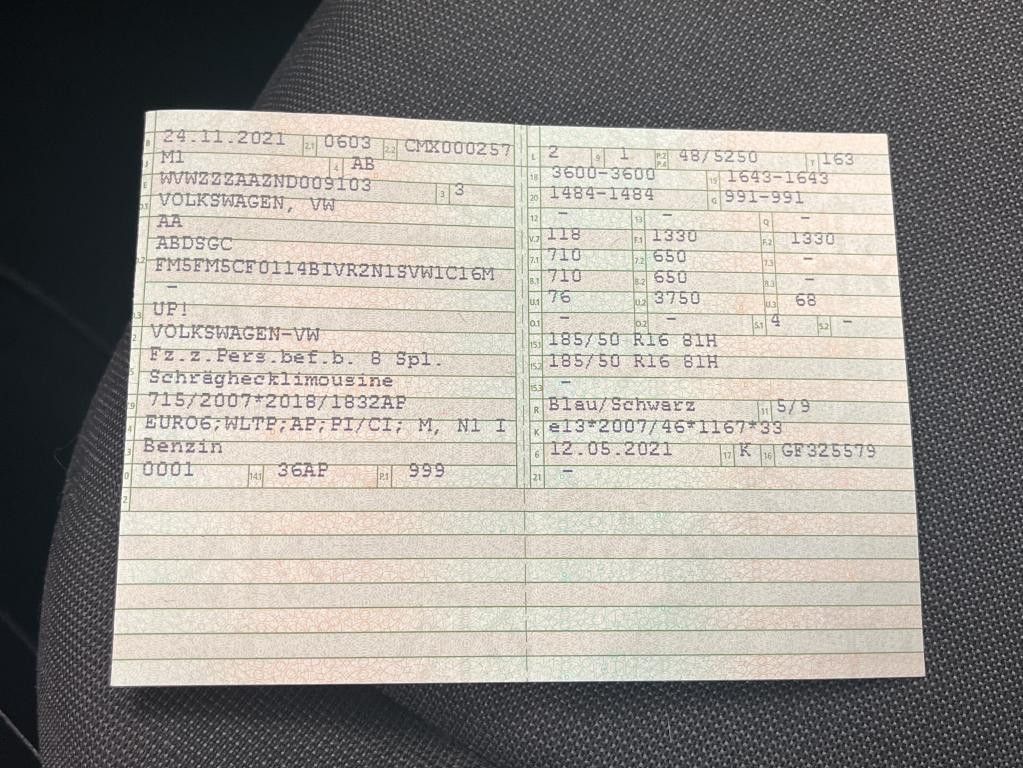 B 24.11.2021 2.1 0603 2.2 CMX000257
J M1 4 AB
E WVWZZZAAZND009103 3 3
D.1 VOLKSWAGEN, VW
AA
D.2 ABDSGC
FM5FM5CF0114BIVR2N1SVW1C16M
–
D.3 UP!
2 VOLKSWAGEN-VW
5 Fz.z.Pers.bef.b. 8 Spl.
Schräghecklimousine
V.9 715/2007*2018/1832AP
14 EURO6;WLTP;AP;PI/CI; M, N1 I
P.3 Benzin
10 0001 14.1 36AP P.1 999
22
L 2 9 1 P.2 P.4 48/5250 T 163
18 3600-3600 19 1643-1643
20 1484-1484 G 991-991
12 – 13 – Q –
V.7 118 F.1 1330 F.2 1330
7.1 710 7.2 650 7.3 –
8.1 710 8.2 650 8.3 –
U.1 76 U.2 3750 U.3 68
O.1 – O.2 – S.1 4 S.2 –
15.1 185/50 R16 81H
15.2 185/50 R16 81H
15.3 –
R Blau/Schwarz 11 5/9
K e13*2007/46*1167*33
6 12.05.2021 17 K 16 GF325579
21 –